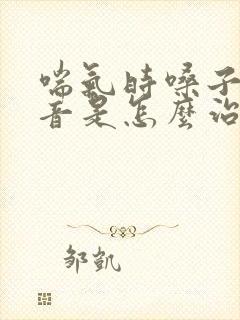 喘氣時嗓子
音是怎麼治
邹凱